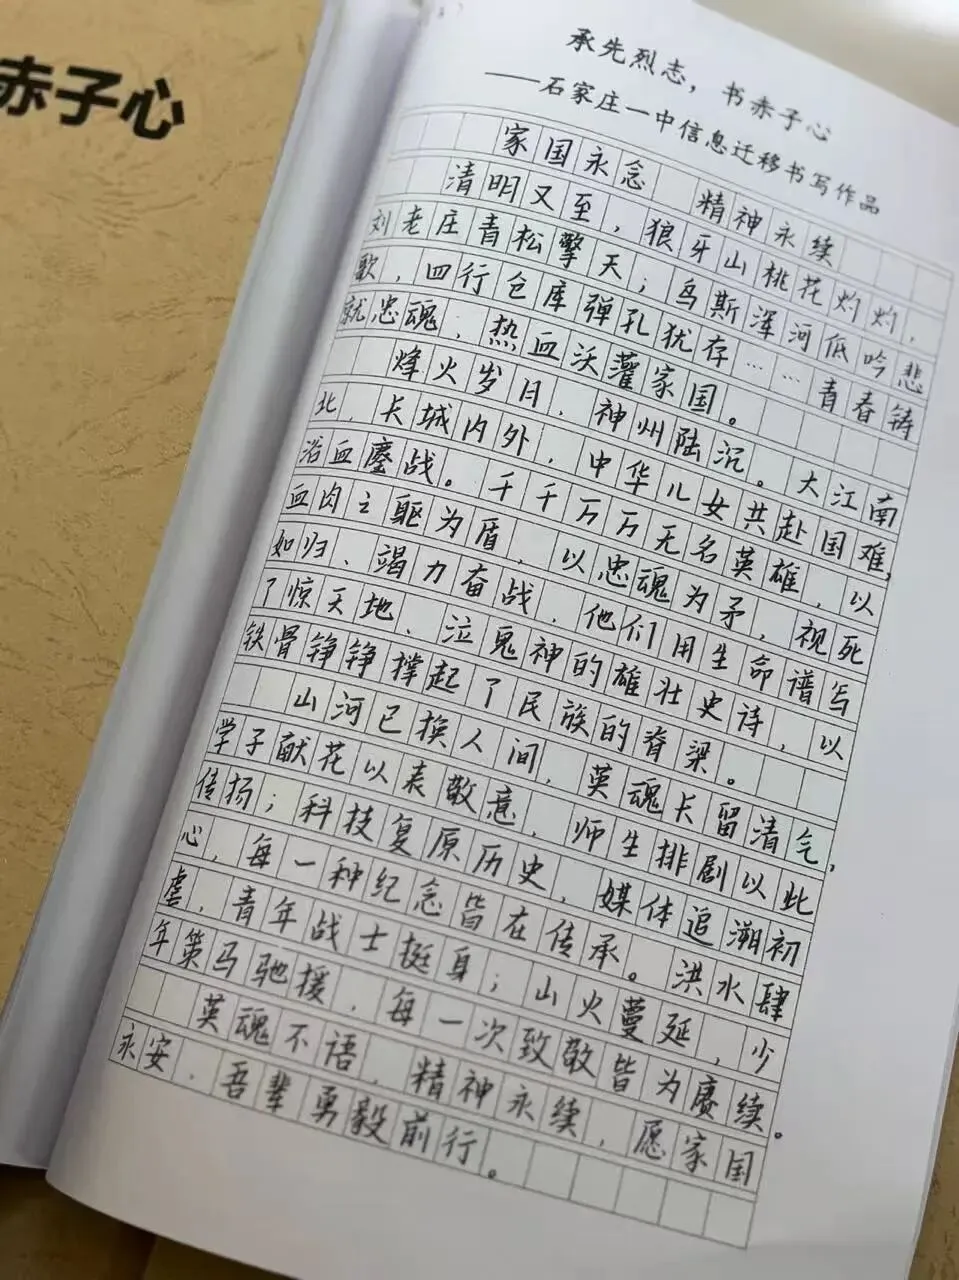 赤子心
承先烈志，书赤子心
——石家庄一中信息迁移书写作品
家国永念 精神永续
清明又至，狼牙山桃花灼灼，
刘老庄青松擎天；乌斯浑河低吟悲
歌，四行仓库弹孔犹存……青春铸
就忠魂，热血沃灌家国。
烽火岁月，神州陆沉。大江南
北，长城内外，中华儿女共赴国难，
浴血鏖战。千千万万无名英雄，以
血肉之躯为盾，以忠魂为矛，视死
如归、竭力奋战，他们用生命谱写
了惊天地、泣鬼神的雄壮史诗，以
铁骨铮铮撑起了民族的脊梁。
山河已换人间，英魂长留清气，
学子献花以表敬意，师生排剧以此
传扬；科技复原历史，媒体追溯初
心，每一种纪念皆在传承。洪水肆
虐，青年战士挺身；山火蔓延，少
年策马驰援，每一次致敬皆为赓续。
英魂不语，精神永续，愿家国
永安，吾辈勇毅前行。